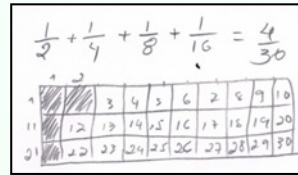 1/2 + 1/4 + 1/8 + 1/16 = 4/30
1 2
1 3 4 5 6 7 8 9 10
11 12 13 14 15 16 17 18 19 20
21 22 23 24 25 26 27 28 29 30